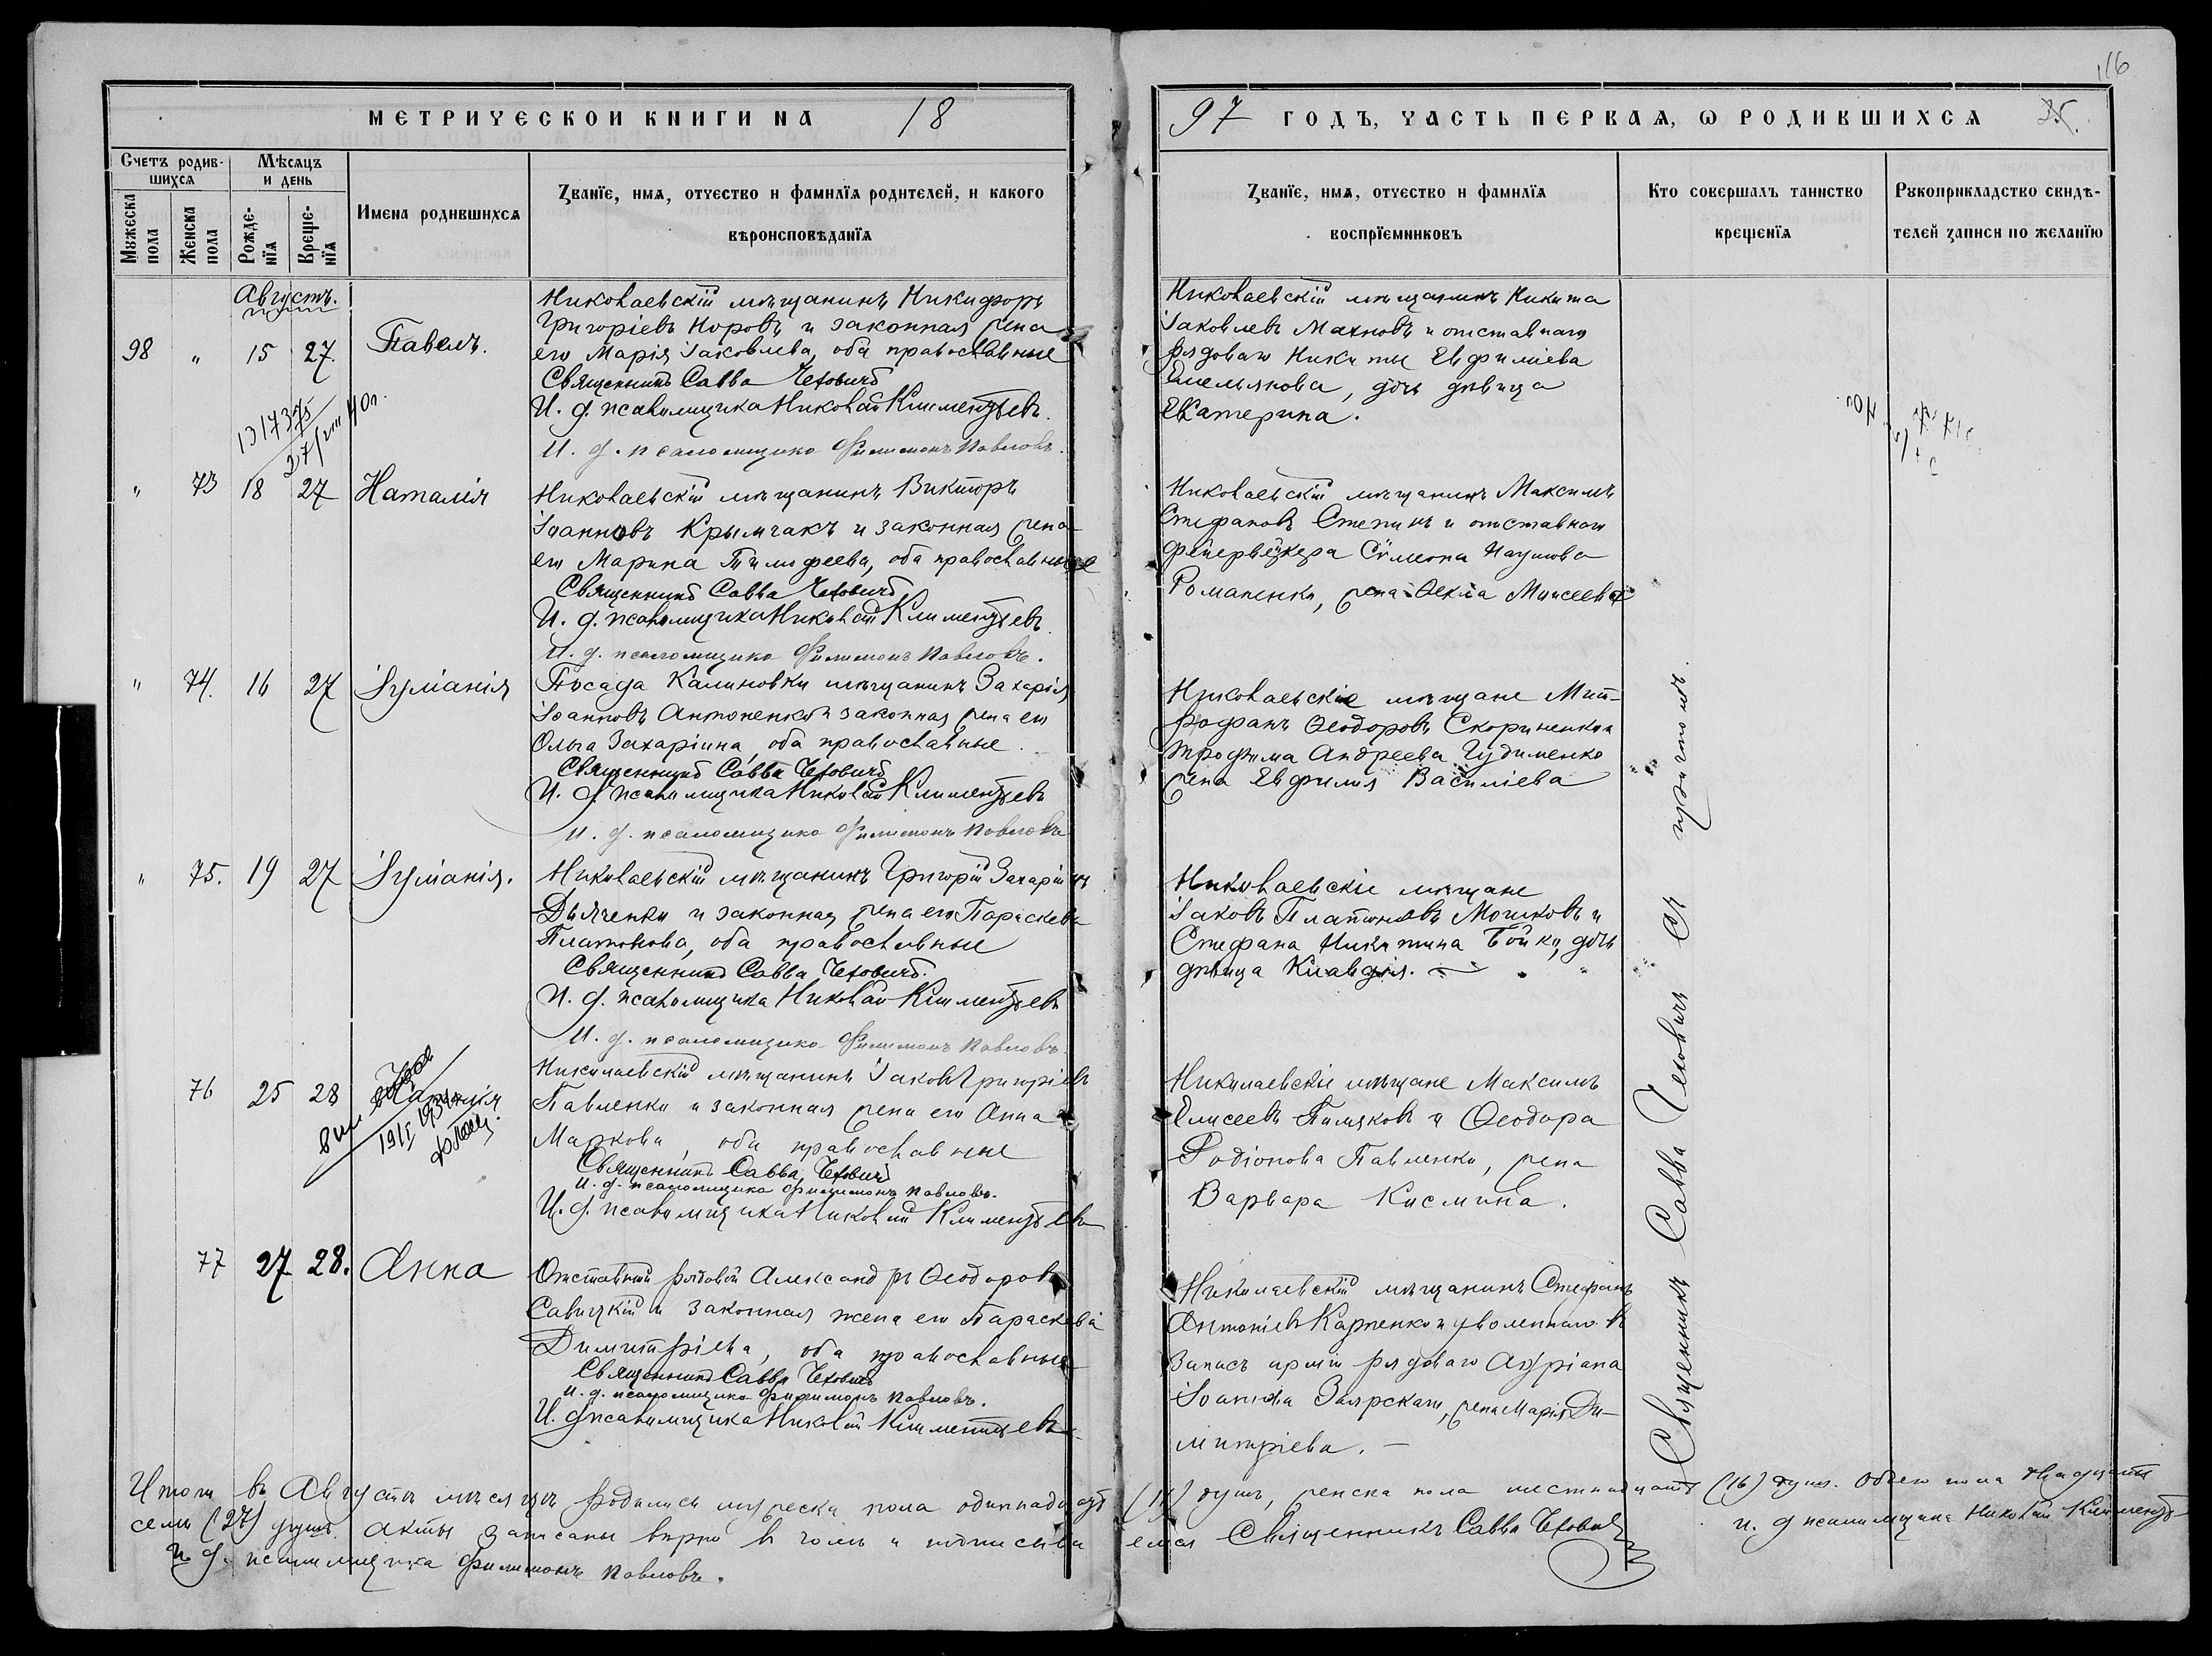 МЕТРИЧЕСКОЙ КНИГИ НА 18
97 ГОДЪ, ЧАСТЬ ПЕРВАЯ, Ѡ РОДИВШИХСЯ
116
Счетъ родив-
шихся
Мужеска пола
Женска пола
Мѣсяцъ
и день
Рожде-
нїя
Креще-
нїя
Имена родившихся
Званїе, имя, отчество и фамилїя родителей, и какого
вѣроисповѣданїя
Званїе, имя, отчество и фамилїя
воспрїемниковъ
Кто совершалъ таинство
крещенїя
Рукоприкладство свидѣ-
телей записи по желанїю
Августъ.
98 " 15 27. Павелъ.
1317375
27/VIII 40г.
Николаевскій мѣщанинъ Никифоръ
Григоріевъ Норовъ и законная жена
его Марія Іаковлева, оба православные
Священникъ Савва Чехович
И. д. псаломщика Николай Климентьевъ.
И. д. псаломщика Филимонъ Павловъ.
Николаевскій мѣщанинъ Никита
Іаковлевъ Махновъ и отставнаго
рядоваго Никиты Евфиміева
Емельянова, дочь дѣвица
Екатерина.
" 73 18 27 Наталія
Николаевскій мѣщанинъ Викторъ
Іоанновъ Крымчакъ и законная жена
его Марина Тимофеева, оба православные
Священникъ Савва Чехович
И. д. псаломщика Николай Климентьевъ.
И. д. псаломщика Филимонъ Павловъ.
Николаевскій мѣщанинъ Максимъ
Стефановъ Степинъ и отставнаго
фейерверкера Сѵмеона Наумова
Романенко, жена Ѳекла Моисеева
" 74. 16 27 Іуліанія
Посада Калиновки мѣщанинъ Захарія
Іоанновъ Антоненко и законная жена его
Ольга Захаріина, оба православные.
Священникъ Савва Чехович
И. д. псаломщика Николай Климентьевъ
И. д. псаломщика Филимонъ Павловъ
Николаевскіе мѣщане Мит-
рофанъ Ѳеодоровъ Скориненко и
Трофима Андреева Гудименко
жена Евфимія Василіева
" 75. 19 27 Іуліанія.
Николаевскій мѣщанинъ Григорій Захаріинъ
Дьяченко и законная жена его Параскева
Платонова, оба православные
Священникъ Савва Чехович.
И. д. псаломщика Николай Климентьевъ
И. д. псаломщика Филимонъ Павловъ
Николаевскіе мѣщане
Іаковъ Платоновъ Мошковъ и
Стефана Никитина Бойко, дочь
дѣвица Клавдія.
76 25 28 Наталія
Николаевскій мѣщанинъ Іаковъ Григоріевъ
Павленко и законная жена его Анна
Маркова, оба православные
Священникъ Савва Чехович
И. д. псаломщика Филимонъ Павловъ.
И. д. псаломщика Николай Климентьевъ
Николаевскіе мѣщане Максимъ
Елисеевъ Поляковъ и Ѳеодора
Родіонова Павленко, жена
Варвара Косьмина.
77 27 28. Анна
Отставной рядовой Александръ Ѳеодоровъ
Савицкій и законная жена его Параскева
Димитріева, оба православные
Священникъ Савва Чехович
И. д. псаломщика Филимонъ Павловъ.
И. д. псаломщика Николай Климентьевъ
Николаевскій мѣщанинъ Стефанъ
Антоніевъ Карпенко и уволеннаго въ
запасъ арміи рядоваго Адріана
Іоаннова Заярскаго, жена Марія Ди-
митріева. —
Священникъ Савва Чеховичъ съ причтомъ.
Итого въ Августѣ мѣсяцѣ родилось мужеска пола одиннадцать (11) душъ, женска пола шестнадцать (16) душъ. Обоего пола двадцать
семь (27) душъ. Акты записаны вѣрно въ чемъ и подписываемся Священникъ Савва Чехович и. д. псаломщика Николай Климентьевъ
и. д. псаломщика Филимонъ Павловъ.